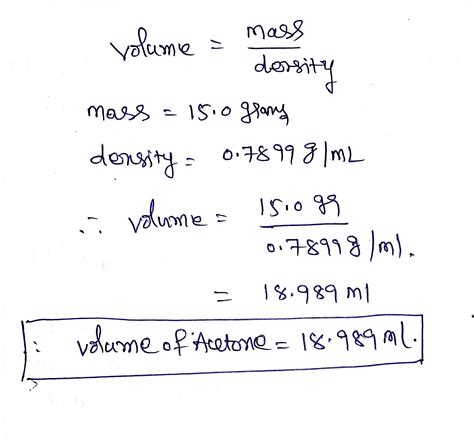 volume = mass / density
mass = 15.0 grams
density = 0.7899 g/mL
∴ volume = 15.0 gg / 0.7899 g/ml.
= 18.989 ml
: volume of Acetone = 18.989 ml.